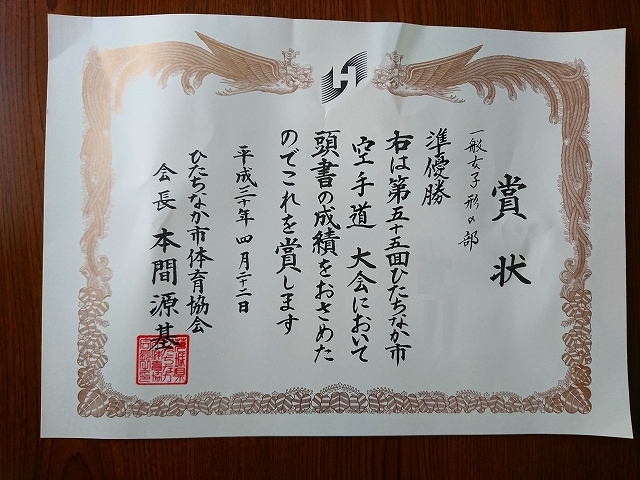 賞状
一般女子形の部
準優勝
右は第五十五回ひたちなか市
空手道 大会において
頭書の成績をおさめた
のでこれを賞します
平成三十年 四月二十二日
ひたちなか市体育協会
会長 本間源基